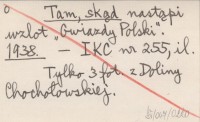 o Tam, skąd nastąpi
wzlot „Gwiazdy Polski”.
1938. — IKC nr 255, il.
Tylko 3 fot. z Doliny
Chochołowskiej.